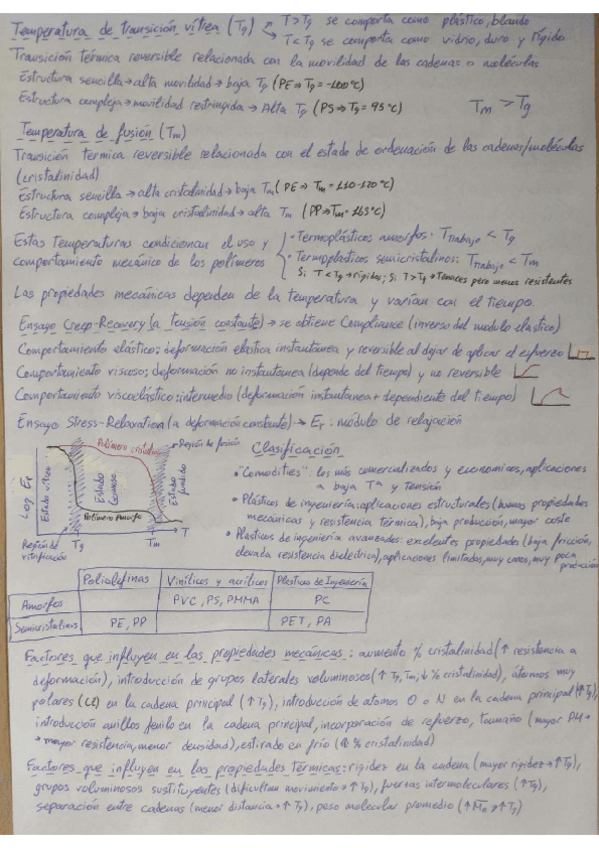 Temperatura de transición vítrea (Tg) T>Tg se comporta como plástico, blando
T<Tg se comporta como vidrio, duro y rígido
Transición térmica reversible relacionada con la movilidad de las cadenas o moléculas
Estructura sencilla→alta movilidad→baja Tg (PE⇒Tg=-100°C)
Estructura compleja→movilidad restringida→Alta Tg (PS⇒Tg=95°C) Tm > Tg
Temperatura de fusión (Tm)
Transición termica reversible relacionada con el estado de ordenación de las cadenas/moléculas
(cristalinidad)
Estructura sencilla→alta cristalinidad→baja Tm (PE⇒Tm=110-170°C)
Estructura compleja→baja cristalinidad→alta Tm (PP⇒Tm=163°C)
Estas Temperaturas condicionan el uso y
comportamiento mecánico de los polímeros
• Termoplásticos amorfos: Ttrabajo < Tg
• Termoplásticos semicristalinos: Ttrabajo < Tm
Si T<Tg→rígidos; Si T>Tg→Tenaces pero menos resistentes
Las propiedades mecánicas dependen de la temperatura y varían con el tiempo.
Ensayo Creep-Recovery (a tensión constante)→se obtiene Compliance (inverso del modulo elastico)
Comportamiento elástico: deformación elastica instantánea y reversible al dejar de aplicar el esfuerzo
Comportamiento viscoso: deformación no instantánea (depende del tiempo) y no reversible
Comportamiento viscoelástico: intermedio (deformación instantanea + dependiente del tiempo)
Ensayo Stress-Relaxation (a deformación constante)→Er: módulo de relajación
Polímero cristalino
Región de fusión
Log Er
Estado vítreo
Estado Gomoso
Estado fundido
Polímero Amorfo
Región de vitrificación
Tg Tm T
Clasificación
• "Comodities": los más comercializados y economicos, aplicaciones
a baja Tª y tensión
• Plásticos de ingeniería: aplicaciones estructurales (buenas propiedades
mecánicas y resistencia térmica), baja producción, mayor coste
• Plasticos de ingeniería avanzados: excelentes propiedades (baja fricción,
elevada resistencia dielectrica), aplicaciones limitadas, muy caros, muy poca
producción
Poliolefinas Vinílicos y acrílicos Plásticos de Ingeniería
Amorfos PVC, PS, PMMA PC
Semicristalinos PE, PP PET, PA
Factores que influyen en las propiedades mecánicas: aumento % cristalinidad (↑ resistencia a
deformación), introducción de grupos laterales voluminosos (↑Tg,Tm;↓% cristalinidad), átomos muy
polares (Cl) en la cadena principal (↑Tg), introducción de atomos O o N en la cadena principal (↑Tg),
introducción anillos fenilo en la cadena principal, incorporación de refuerzo, tamaño (mayor PM→
→mayor resistencia, menor densidad), estirado en frío (↑ % cristalinidad)
Factores que influyen en las propiedades térmicas: rigidez en la cadena (mayor rigidez→↑Tg),
grupos voluminosos sustituyentes (dificultan movimiento→↑Tg), fuerzas intermoleculares (↑Tg),
separación entre cadenas (menor distancia→↑Tg), peso molecular promedio (↑Mn→↑Tg)